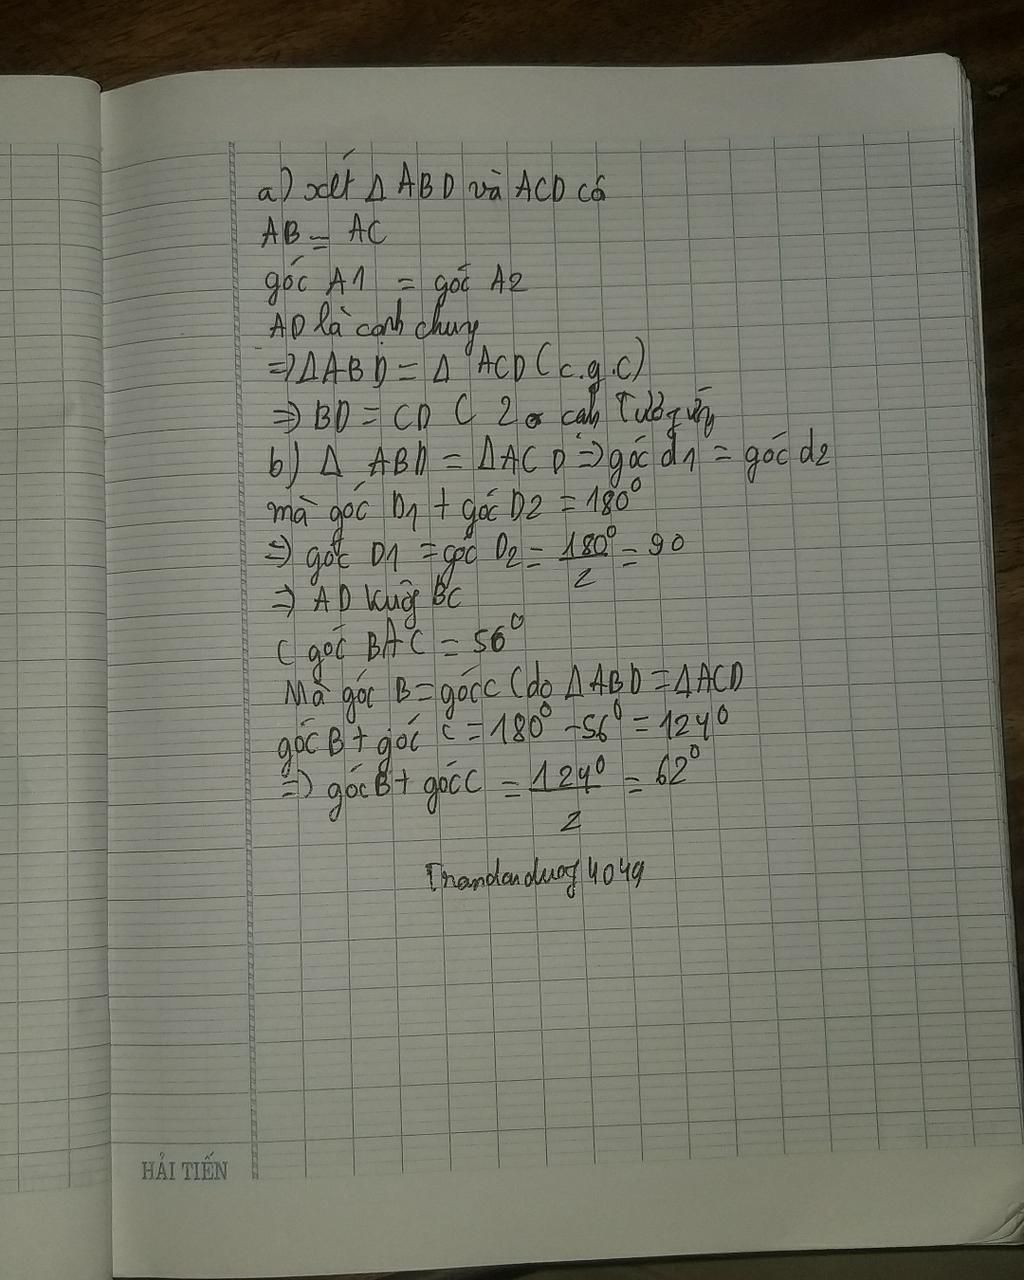 a) xét Δ ABD và ACD có
AB = AC
góc A1 = góc A2
AD là cạnh chung
=> ΔABD = Δ ACD (c.g.c)
=> BD = CD ( 2
b) Δ ABD = ΔACD => góc d1 = góc d2
mà góc D1 + góc D2 = 180°
=> góc D1 = góc D2 = 180°/2 = 90
=> AD BC
C góc BAC = 56°
Mà góc B = góc C (do ΔABD = ΔACD
góc B + góc C = 180° - 56° = 124°
=> góc B + góc C = 124°/2 = 62°
HẢI TIẾN